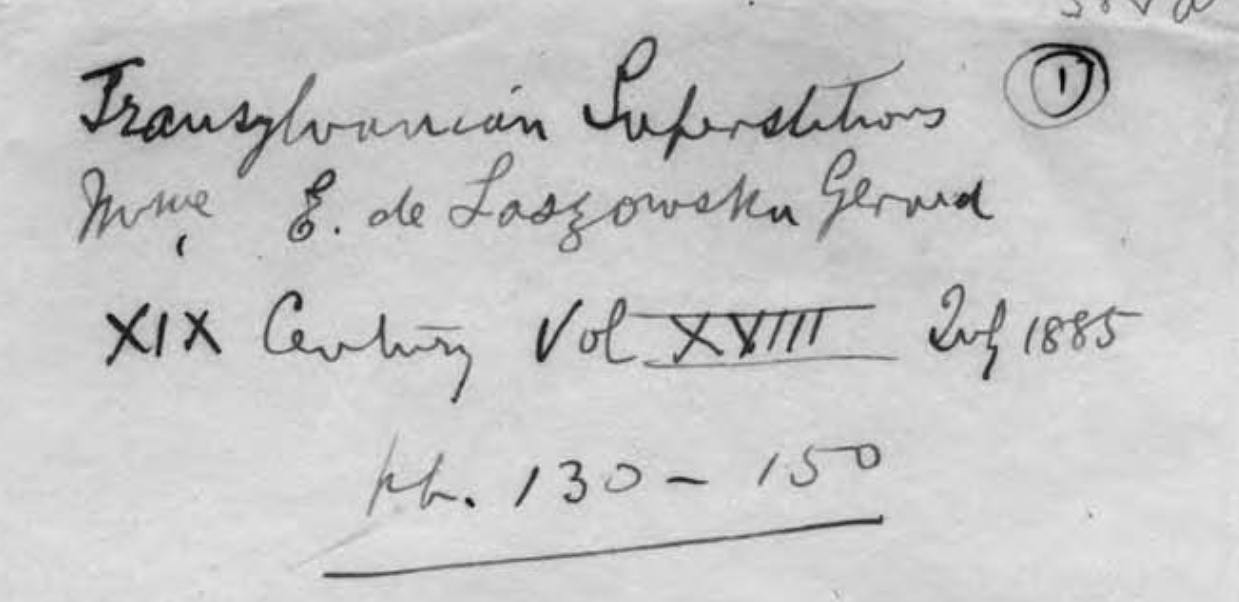 Transylvanian Superstitions ①
Mme E. de Laszowska Gerard
XIX Century Vol XVIII July 1885
pp. 130 - 150